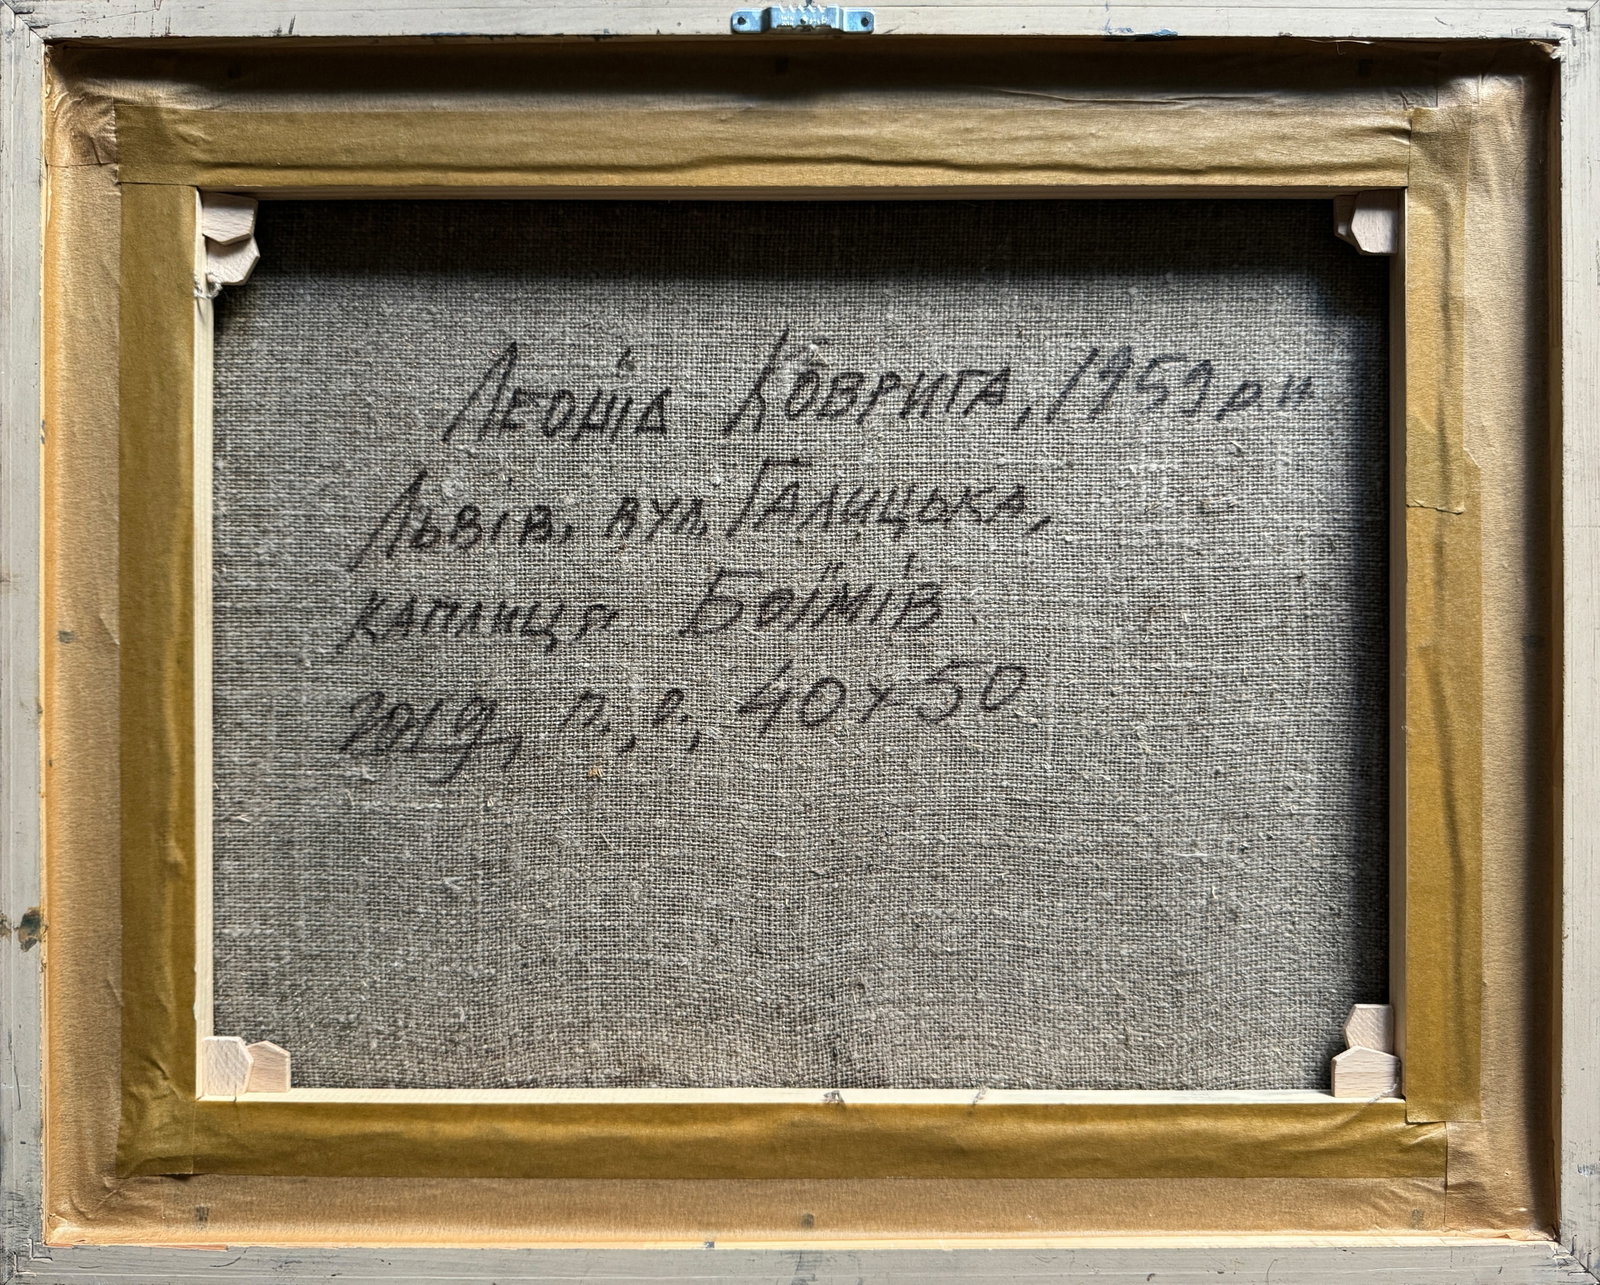 Леонід Коврига, 1959 р н
Львів, вул. Галицька,
каплиця Боїмів.
2019, п., о., 40х50